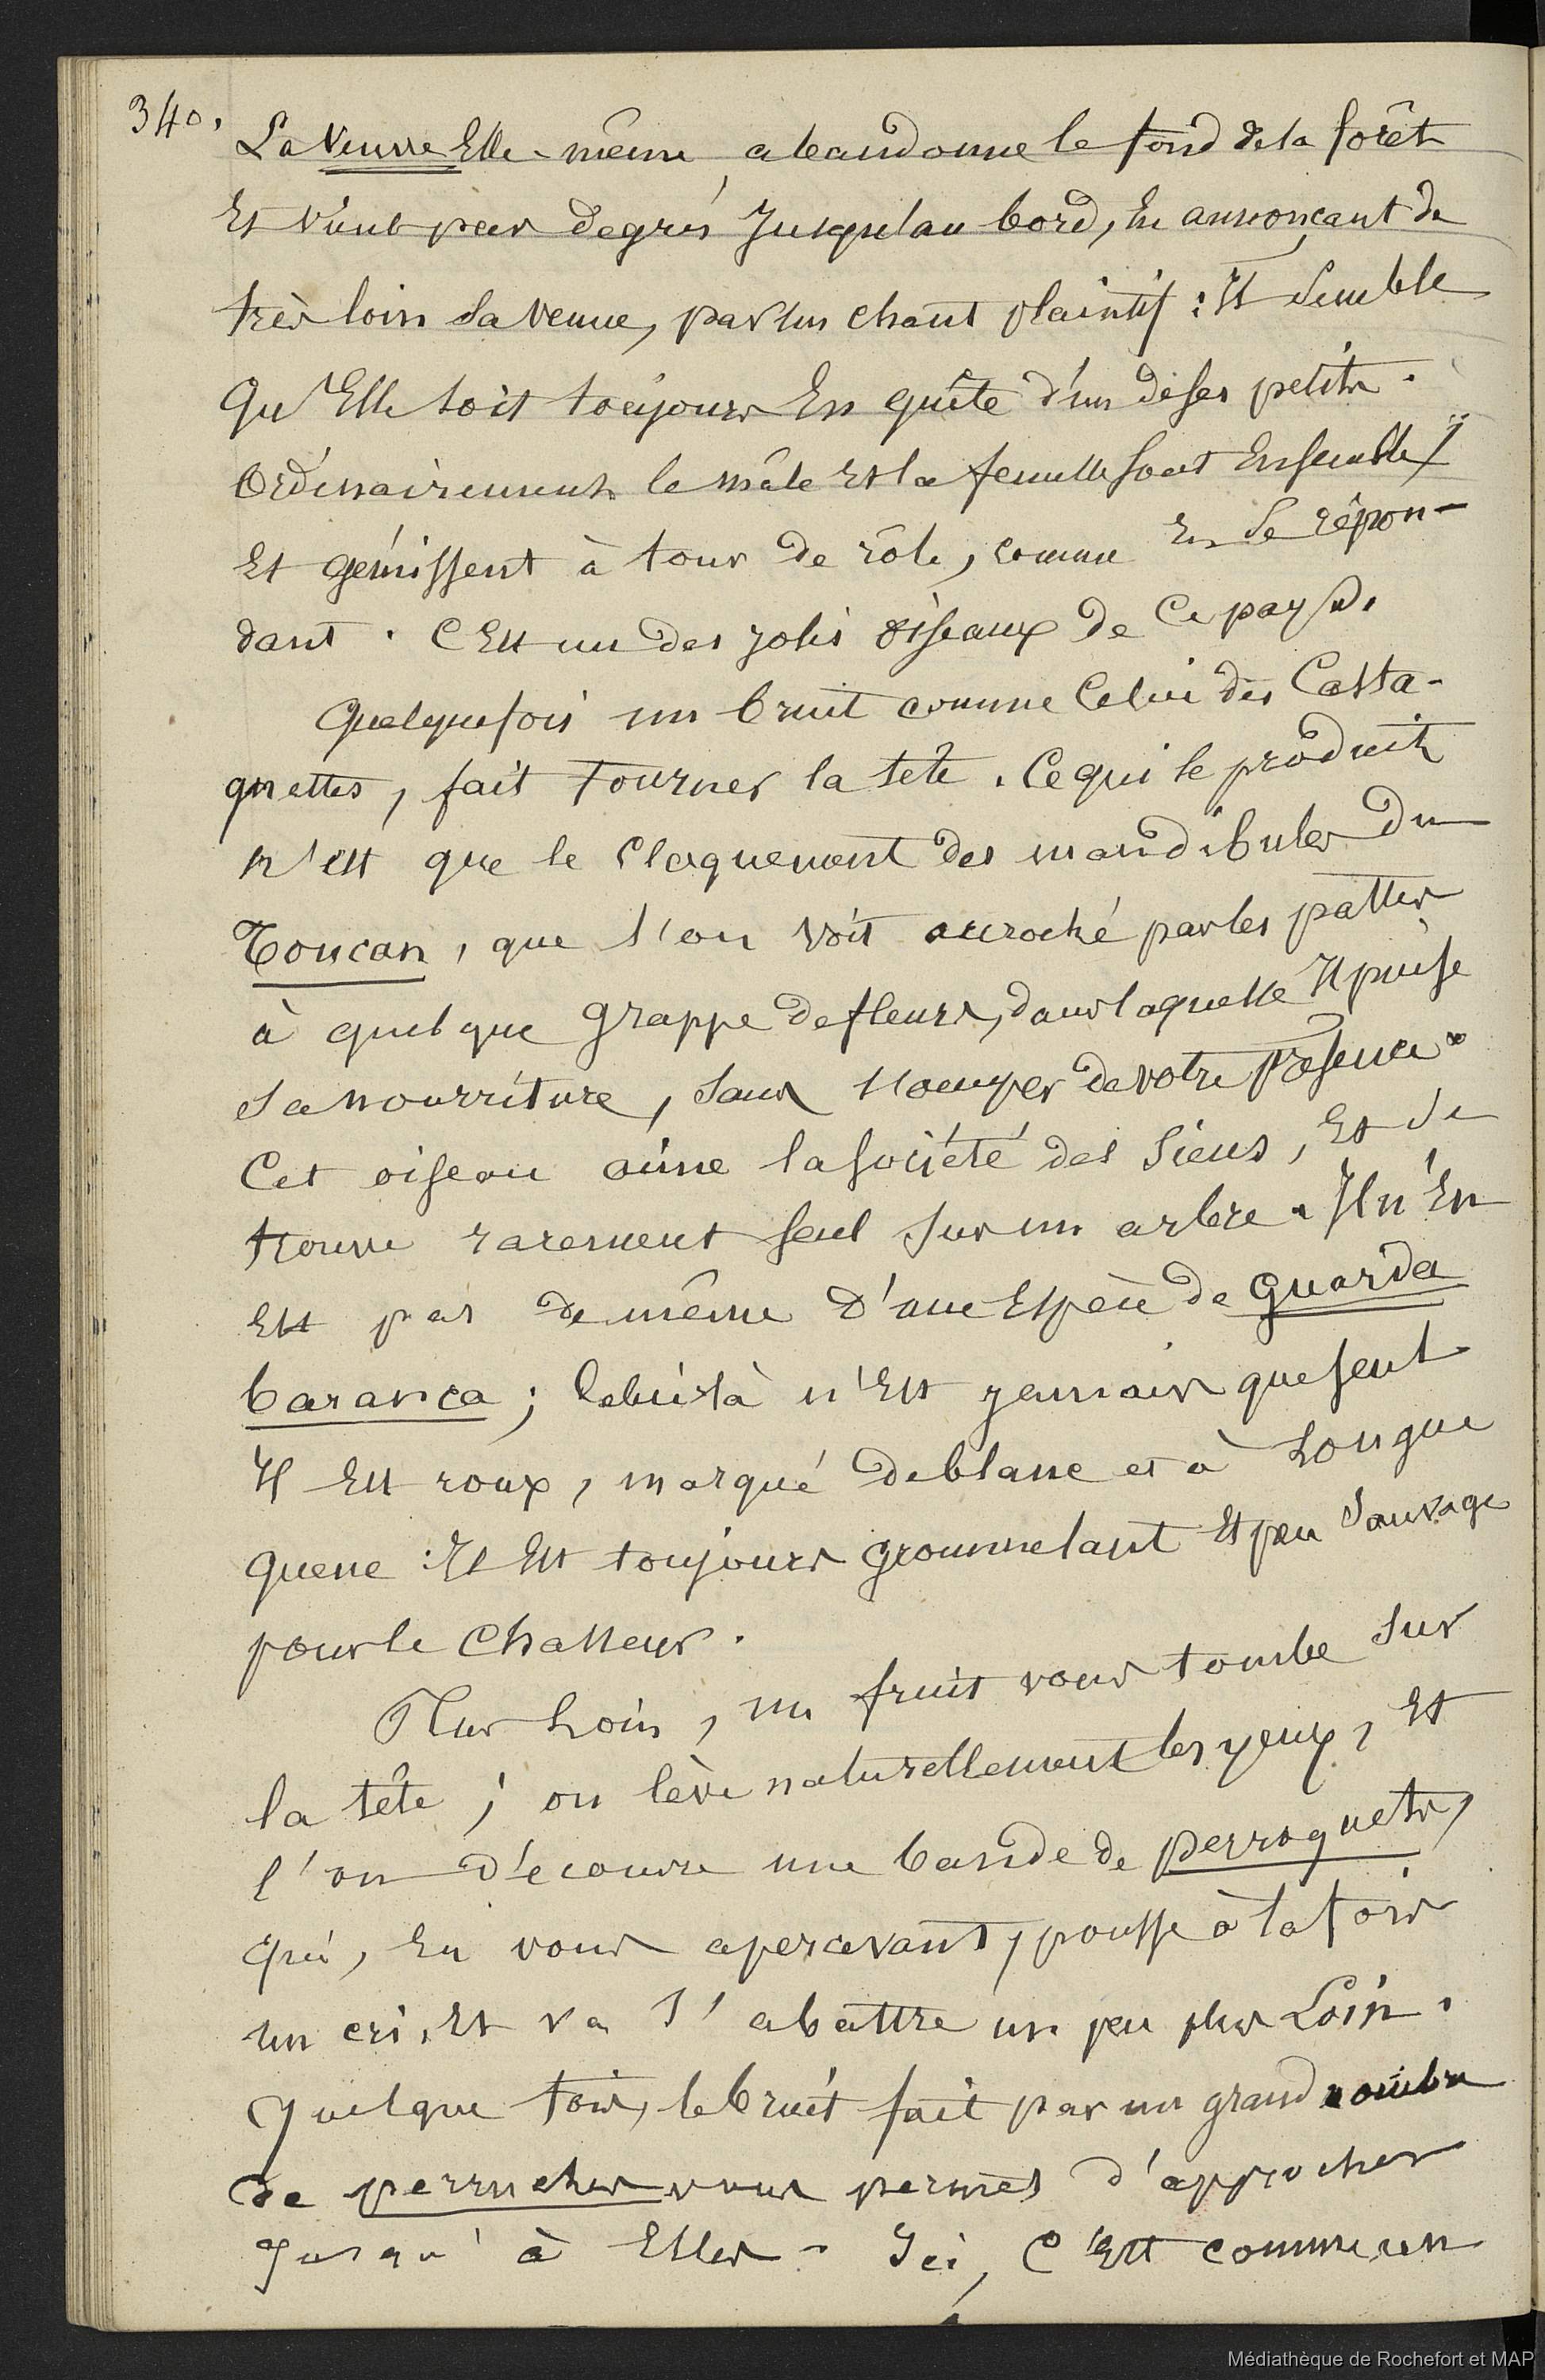 340.
La Veuve Elle-même, abandonne le fond de la forêt
Et vient par degrés Jusqu'au bord, En annonçant de
très loin sa venue, par un chant plaintif : Il semble
qu'Elle soit toujours En quête d'un de ses petits.
Ordinairement le mâle Et la femelle sont Ensemble,
Et gémissent à tour de rôle, comme En se répon-
dant. C'Est un des jolis oiseaux de ce pays.
Quelquefois un bruit comme celui des Casta-
gnettes, fait tourner la tête. Ce qui le produit
n'est que le claquement des mandibules du
Toucan, que l'on voit accroché par les pattes
à quelque grappe de fleurs, dans laquelle Il puise
sa nourriture, sans s'occuper de votre présence.
Cet oiseau aime la société des siens, Et se
trouve rarement seul sur un arbre. Il n'En
Est pas de même d'une Espèce de Guarda
baranca; celui-là n'Est jamais que seul
Il Est roux, marqué de blanc et à Longue
queue : Il Est toujours grommelant Et peu sauvage
pour le chasseur.
Plus Loin, un fruit vous tombe sur
la tête; on lève naturellement les yeux, Et
l'on découvre une bande de perroquets,
qui, En vous apercevant, pousse à la fois
un cri, Et va s'abattre un peu plus Loin.
Quelque fois, le bruit fait par un grand nombre
de perruches vous permet d'approcher
Jusqu'à Elles. Ici, C'Est comme un
Médiathèque de Rochefort et MAP